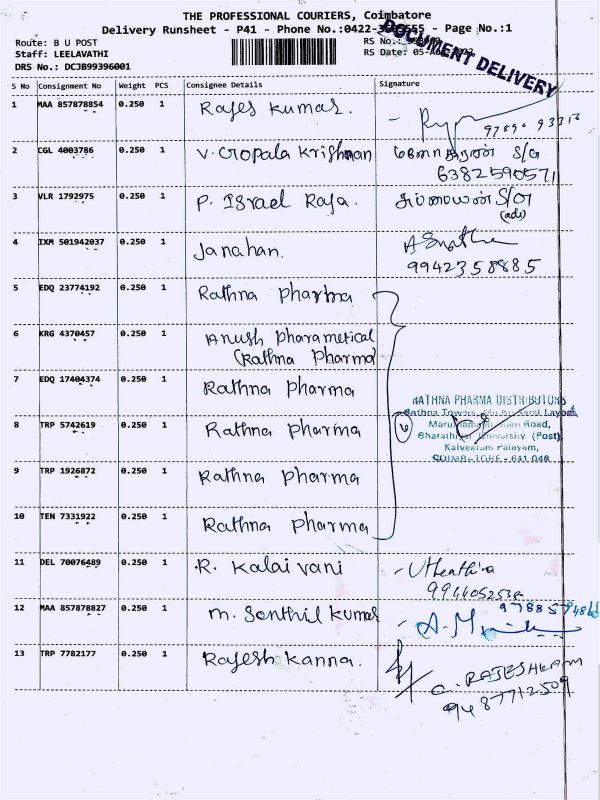 THE PROFESSIONAL COURIERS, Coimbatore
Delivery Runsheet - P41 - Phone No.:0422- - Page No.:1
Route: B U POST
RS No.:
Staff: LEELAVATHI
RS Date: 05-
DRS No.: DCJB99396001
DOCUMENT DELIVERY
S No Consignment No Weight PCS Consignee Details Signature
1 MAA 857878854 0.250 1 Rajes Kumar.
2 CGL 4003786 0.250 1 V. Gopala Krishnan S/o
6382590571
3 VLR 1792975 0.250 1 P. Israel Raja. S/o
4 IXM 501942037 0.250 1 Janahan.
9942358885
5 EDQ 23774192 0.250 1 Rathna Pharma
6 KRG 4370457 0.250 1 Anush Pharametical
(Rathna Pharma)
7 EDQ 17404374 0.250 1 Rathna Pharma
RATHNA PHARMA DISTRIBUTORS
Rathna Towers, Layout,
8 TRP 5742619 0.250 1 Rathna Pharma 6
Road,
Bharathiyar University (Post)
Kalveeram Palayam,
COIMBATORE - 641 046
9 TRP 1926872 0.250 1 Rathna Pharma
10 TEN 7331922 0.250 1 Rathna Pharma
11 DEL 70076489 0.250 1 R. Kalaivani
12 MAA 857878827 0.250 1 M. Senthil Kumar
13 TRP 7782177 0.250 1 Rajesh Kanna.
9487712509